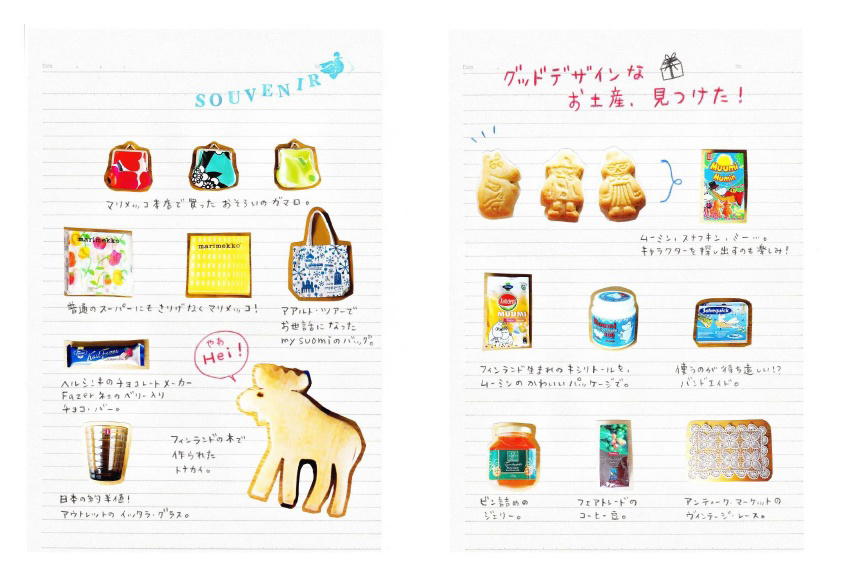 SOUVENIR
マリメッコ本店で買った おそろいのガマ口。
marimekko
marimekko
普通のスーパーにもさりげなくマリメッコ!
アアルト・ツアーで
お世話になった
my suomiのバッグ。
やあ
Hei!
ヘルシンキのチョコレートメーカー
Fazer社のベリー入り
チョコ・バー。
フィンランドの木で
作られた
トナカイ。
日本の約半値!
アウトレットのイッタラ・グラス。
グッドデザインな
お土産、見つけた!
Muumi
Mumin
ムーミン、スナフキン、ミー…。
キャラクターを探し出すのも楽しみ!
MUUMI
Salvequick
フィンランド生まれのキシリトールも、
ムーミンのかわいいパッケージで。
使うのが待ち遠しい!?
バンドエイド。
ビン詰めの
ジェリー。
フェアトレードの
コーヒー豆。
アンティーク・マーケットの
ヴィンテージ・レース。